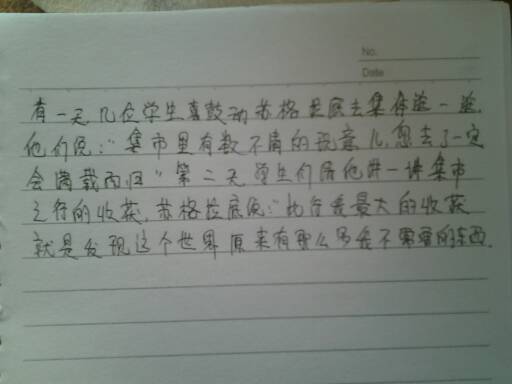 No.
Date
有一天几位学生喜鼓动苏格拉底去集市逛一逛.
他们说:“集市里有数不清的玩意儿,您去了一定
会满载而归”第二天学生们请他讲一讲集市
之行的收获,苏格拉底说:“此行我最大的收获
就是发现这个世界原来有那么多我不需要的东西.